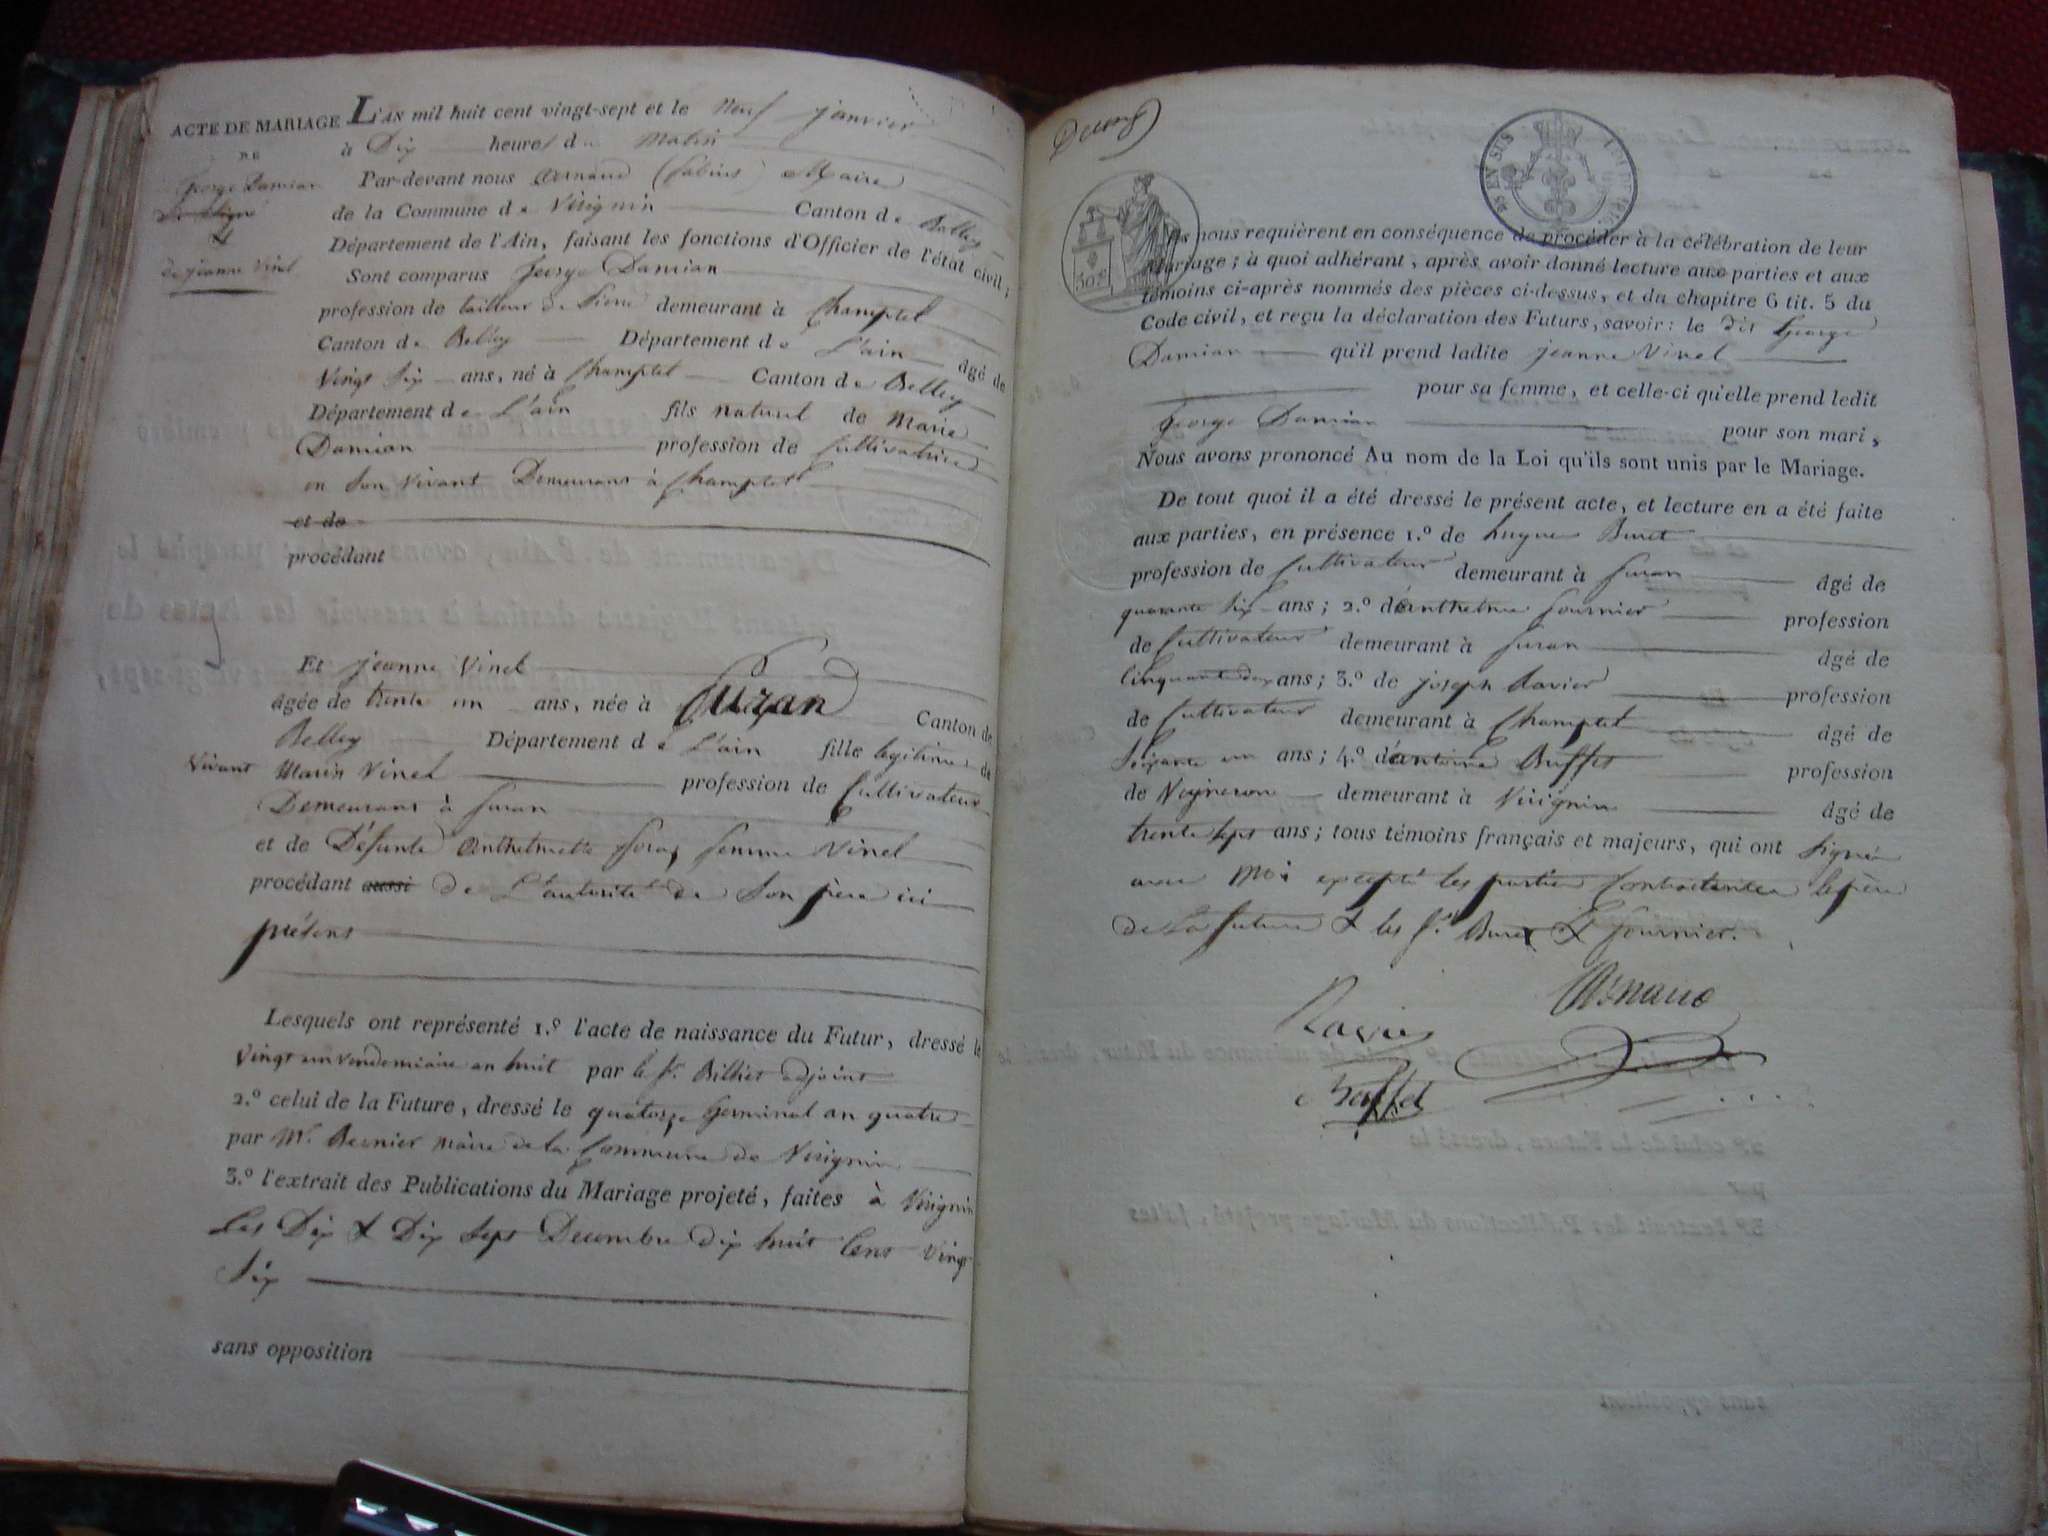 ACTE DE MARIAGE
DE
George Damian
&
de jeanne Vinet
L'AN mil huit cent vingt-sept et le Neuf janvier
à Dix heures du Matin
Par-devant nous Maire
de la Commune de Virignin Canton de Belley
Département de l'Ain, faisant les fonctions d'Officier de l'état civil;
Sont comparus George Damian
profession de tailleur de Pierre demeurant à Champtel
Canton de Belley Département de L'ain âgé de
Vingt Six ans, né à Champtel Canton de Belley
Département de L'ain fils naturel de Marie
Damian profession de Cultivatrice
en Son Vivant Demeurant à Champtel
et de
procédant
Et jeanne Vinet
âgée de trente un ans, née à Furan Canton de
Belley Département de L'ain fille legitime de
Vivant Marin Vinet profession de Cultivateur
Demeurant à furan
et de Défunte Anthelmette femme Vinet
procédant aussi de L'autorité de Son père ici
présent
Lesquels ont représenté 1.º l'acte de naissance du Futur, dressé le
Vingt un vendemiaire an huit par le Sr. Billiet adjoint
2.º celui de la Future, dressé le quatorze Germinal an quatre
par Mr. Bernier maire de la Commune de Virignin
3.º l'extrait des Publications du Mariage projeté, faites à Virignin
Les Dix & Dix Sept Decembre dix huit Cent vingt
Six
sans opposition
EN SUS
nous requièrent en conséquence de procéder à la célébration de leur
Mariage; à quoi adhérant, après avoir donné lecture aux parties et aux
témoins ci-après nommés des pièces ci-dessus, et du chapitre 6 tit. 5 du
Code civil, et reçu la déclaration des Futurs, savoir: le dit George
Damian qu'il prend ladite jeanne Vinet
pour sa femme, et celle-ci qu'elle prend ledit
George Damian pour son mari,
Nous avons prononcé Au nom de la Loi qu'ils sont unis par le Mariage.
De tout quoi il a été dressé le présent acte, et lecture en a été faite
aux parties, en présence 1.º de hugue Buret
profession de Cultivateur demeurant à furan âgé de
quarante Six ans; 2.º d'anthelme fournier profession
de Cultivateur demeurant à furan âgé de
Cinquante deux ans; 3.º de joseph Ravier profession
de Cultivateur demeurant à Champtel âgé de
Soixante un ans; 4.º d'antoine Buffet profession
de Vigneron demeurant à Virignin âgé de
trente Sept ans; tous témoins français et majeurs, qui ont Signé
avec Moi excepté les parties Contractantes le père
de La future & les Sr. Buret & fournier.
Ravier
Buffet